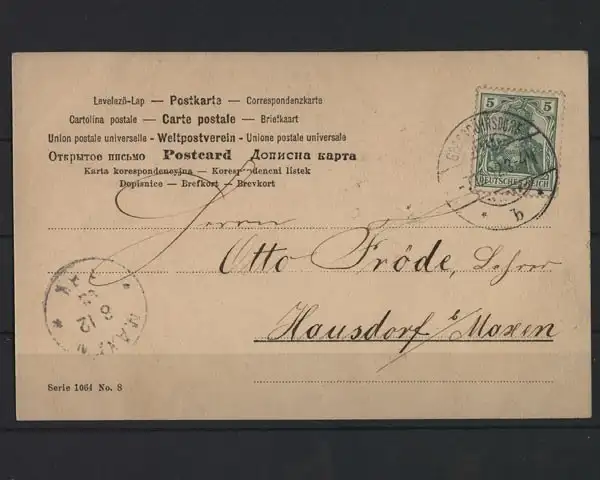 Levelezö-Lap — Postkarta — Correspondenzkarte
Cartolina postale — Carte postale — Briefkaart
Union postale universelle — Weltpostverein — Unione postale universale
Открытое письмо Postcard Дописна карта
Karta korespondencyjna — Korespondenci listek
Dopisnice — Brefkort — Brevkort
5 5
DEUTSCHES REICH
b
Herrn
Otto Fröde, Lehrer
Hausdorf b/Maxen
MAXEN
8 12
Serie 1064 No. 8